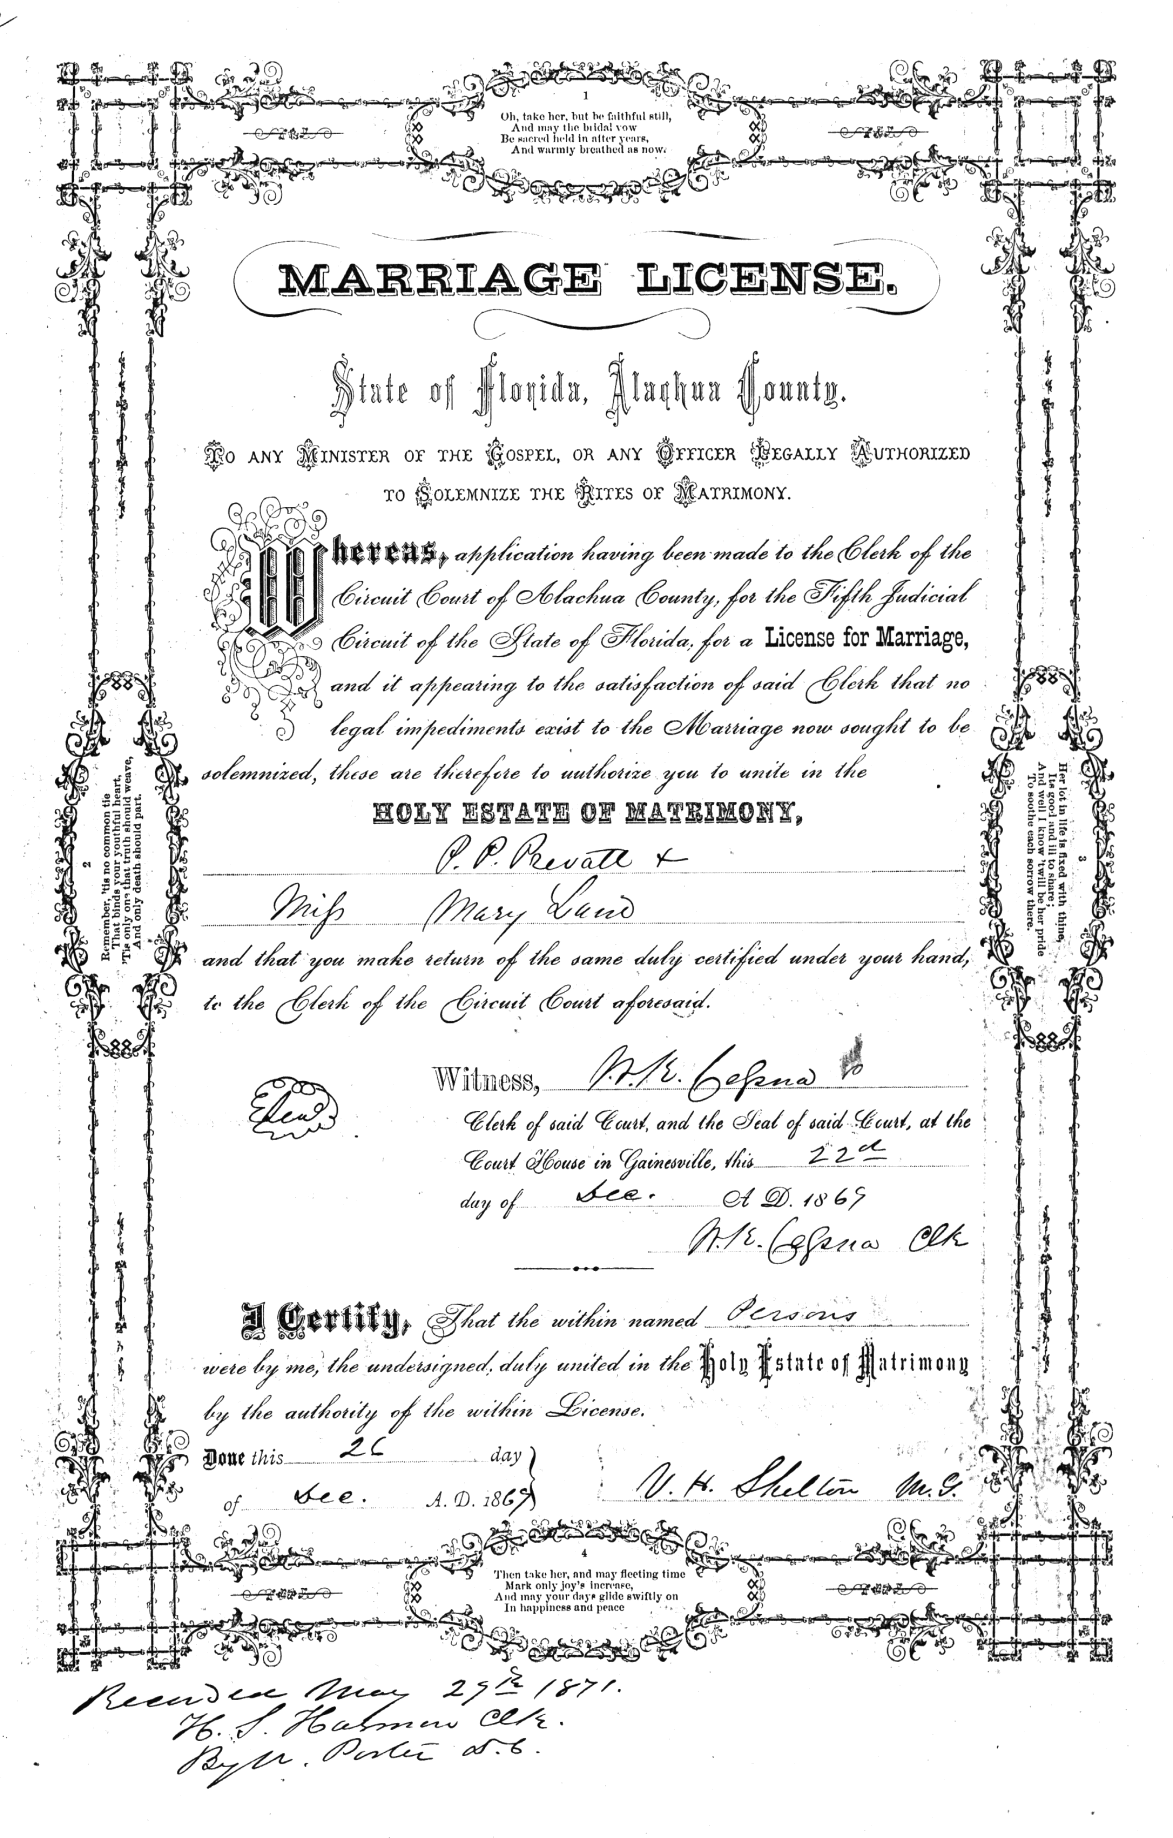 1
Oh, take her, but be faithful still,
And may the bridal vow
Be sacred held in after years,
And warmly breathed as now.
MARRIAGE LICENSE.
State of Florida, Alachua County.
TO ANY MINISTER OF THE GOSPEL, OR ANY OFFICER LEGALLY AUTHORIZED
TO SOLEMNIZE THE RITES OF MATRIMONY.
Whereas, application having been made to the Clerk of the
Circuit Court of Alachua County, for the Fifth Judicial
Circuit of the State of Florida, for a License for Marriage,
and it appearing to the satisfaction of said Clerk that no
legal impediments exist to the Marriage now sought to be
solemnized, these are therefore to authorize you to unite in the
HOLY ESTATE OF MATRIMONY,
P. P. Prevatt +
Miss Mary
and that you make return of the same duly certified under your hand,
to the Clerk of the Circuit Court aforesaid.
Witness, Cessna
Clerk of said Court, and the Seal of said Court, at the
Court House in Gainesville, this 22d
day of Dec. A D. 1869
Cessna Clk
I Certify, That the within named Persons
were by me, the undersigned, duly united in the Holy Estate of Matrimony
by the authority of the within License.
Done this 26 day
of Dec. A.D. 1869
V. H. Shelton M.G.
2
Remember, 'tis no common tie
That binds your youthful heart,
'Tis only one that truth should weave,
And only death should part.
3
Her lot in life is fixed with thine,
Its good and ill to share;
And well I know 'twill be her pride
To soothe each sorrow there.
4
Then take her, and may fleeting time
Mark only joy's increase,
And may your days glide swiftly on
In happiness and peace
Recorded May 29th 1871.
H. S. Harmon Clk.
By W. Porter D.C.